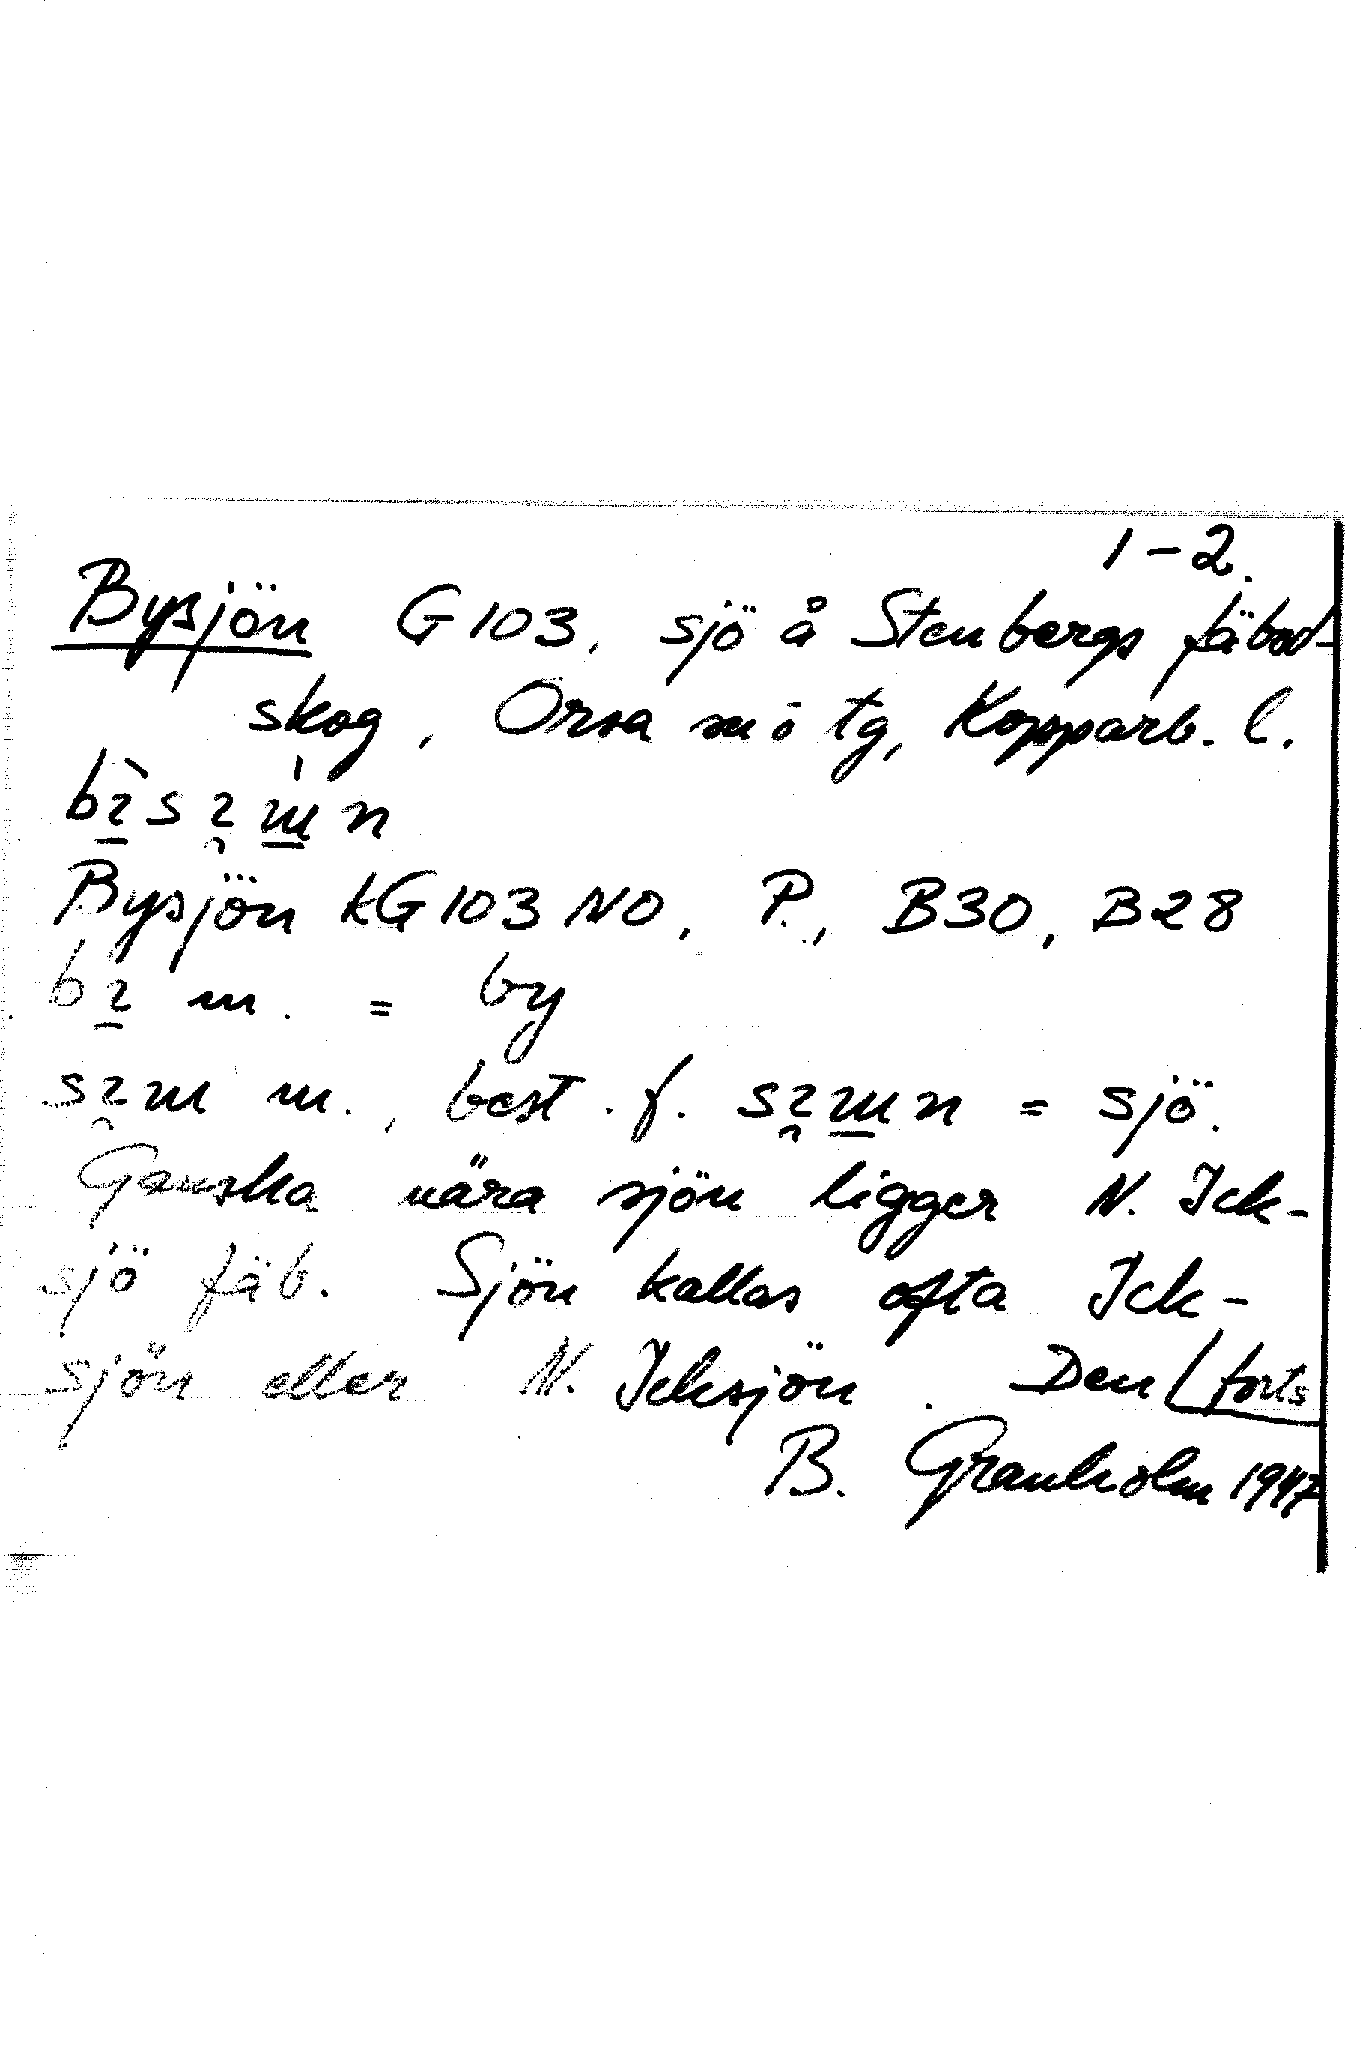 1-2.
Bysjön G 103, sjö å Stenbergs fäbod-
skog, Orsa sn o tg, Kopparb. l.
Bysjön kG 103 NO, P., B30, B28
m. = by
m., best. f. = sjö.
Ganska nära sjön ligger N. Ick-
sjö fäb. Sjön kallas ofta Ick-
sjön eller N. Icksjön. Den / forts
B. Granholm 1947